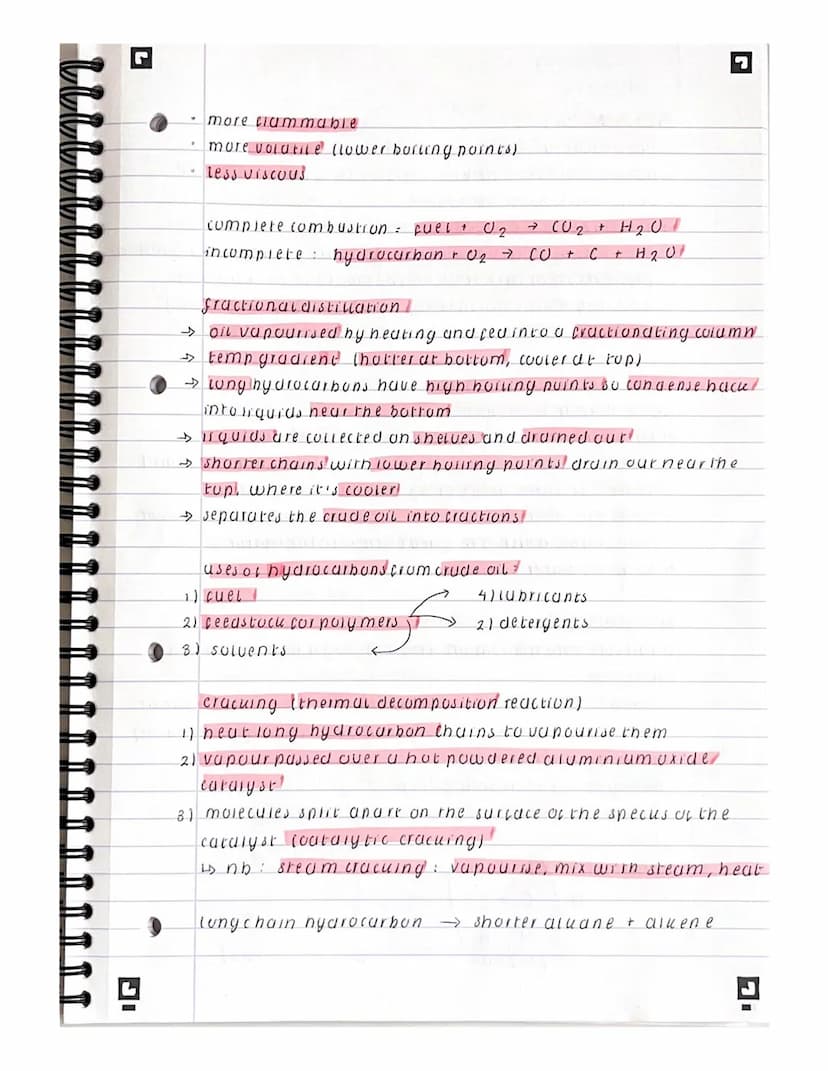 · more flammable
· more volatile (lower boiling points)
· less viscous
complete combustion = fuel + O₂ → CO₂ + H₂O
incomplete : hydrocarbon + O₂ → CO + C + H₂O
fractional distillation
→ oil vapourised by heating and fed into a fractionating column
→ temp gradient (hotter at bottom, cooler at top)
→ long hydrocarbons have high boiling points so condense back
into liquids near the bottom
→ liquids are collected on shelves and drained out
→ shorter chains with lower boiling points drain out near the
top, where it's cooler
→ separates the crude oil into fractions
uses of hydrocarbons from crude oil :
1) fuel 4) lubricants
2) feedstock for polymers 2) detergents
3) solvents
cracking (thermal decomposition reaction)
1) heat long hydrocarbon chains to vapourise them
2) vapour passed over a hot powdered aluminium oxide
catalyst
3) molecules split apart on the surface of the specus of the
catalyst (catalytic cracking)
↳ nb : steam cracking : vapourise, mix with steam, heat
long chain hydrocarbon → shorter alkane + alkene